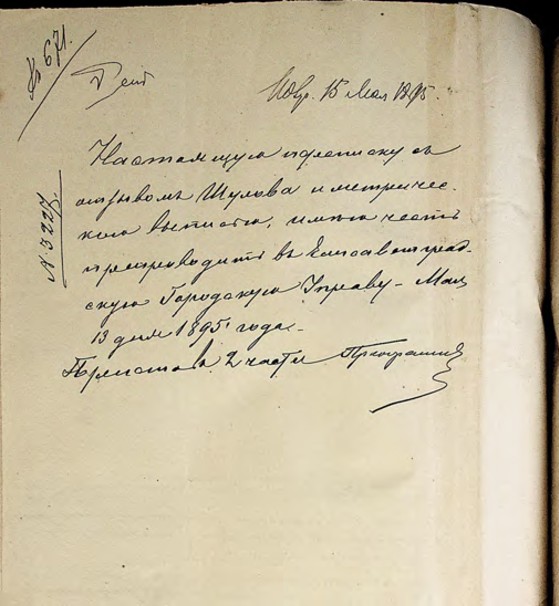 № 671.
15 Мая 1895.
№ 3227
Настоящую переписку съ
отзывомъ Шулова и метричес-
кою выписью, имѣю честь
препроводить въ Елисаветград-
скую Городскую Управу. Мая
13 дня 1895 года.
Приставъ 2 части